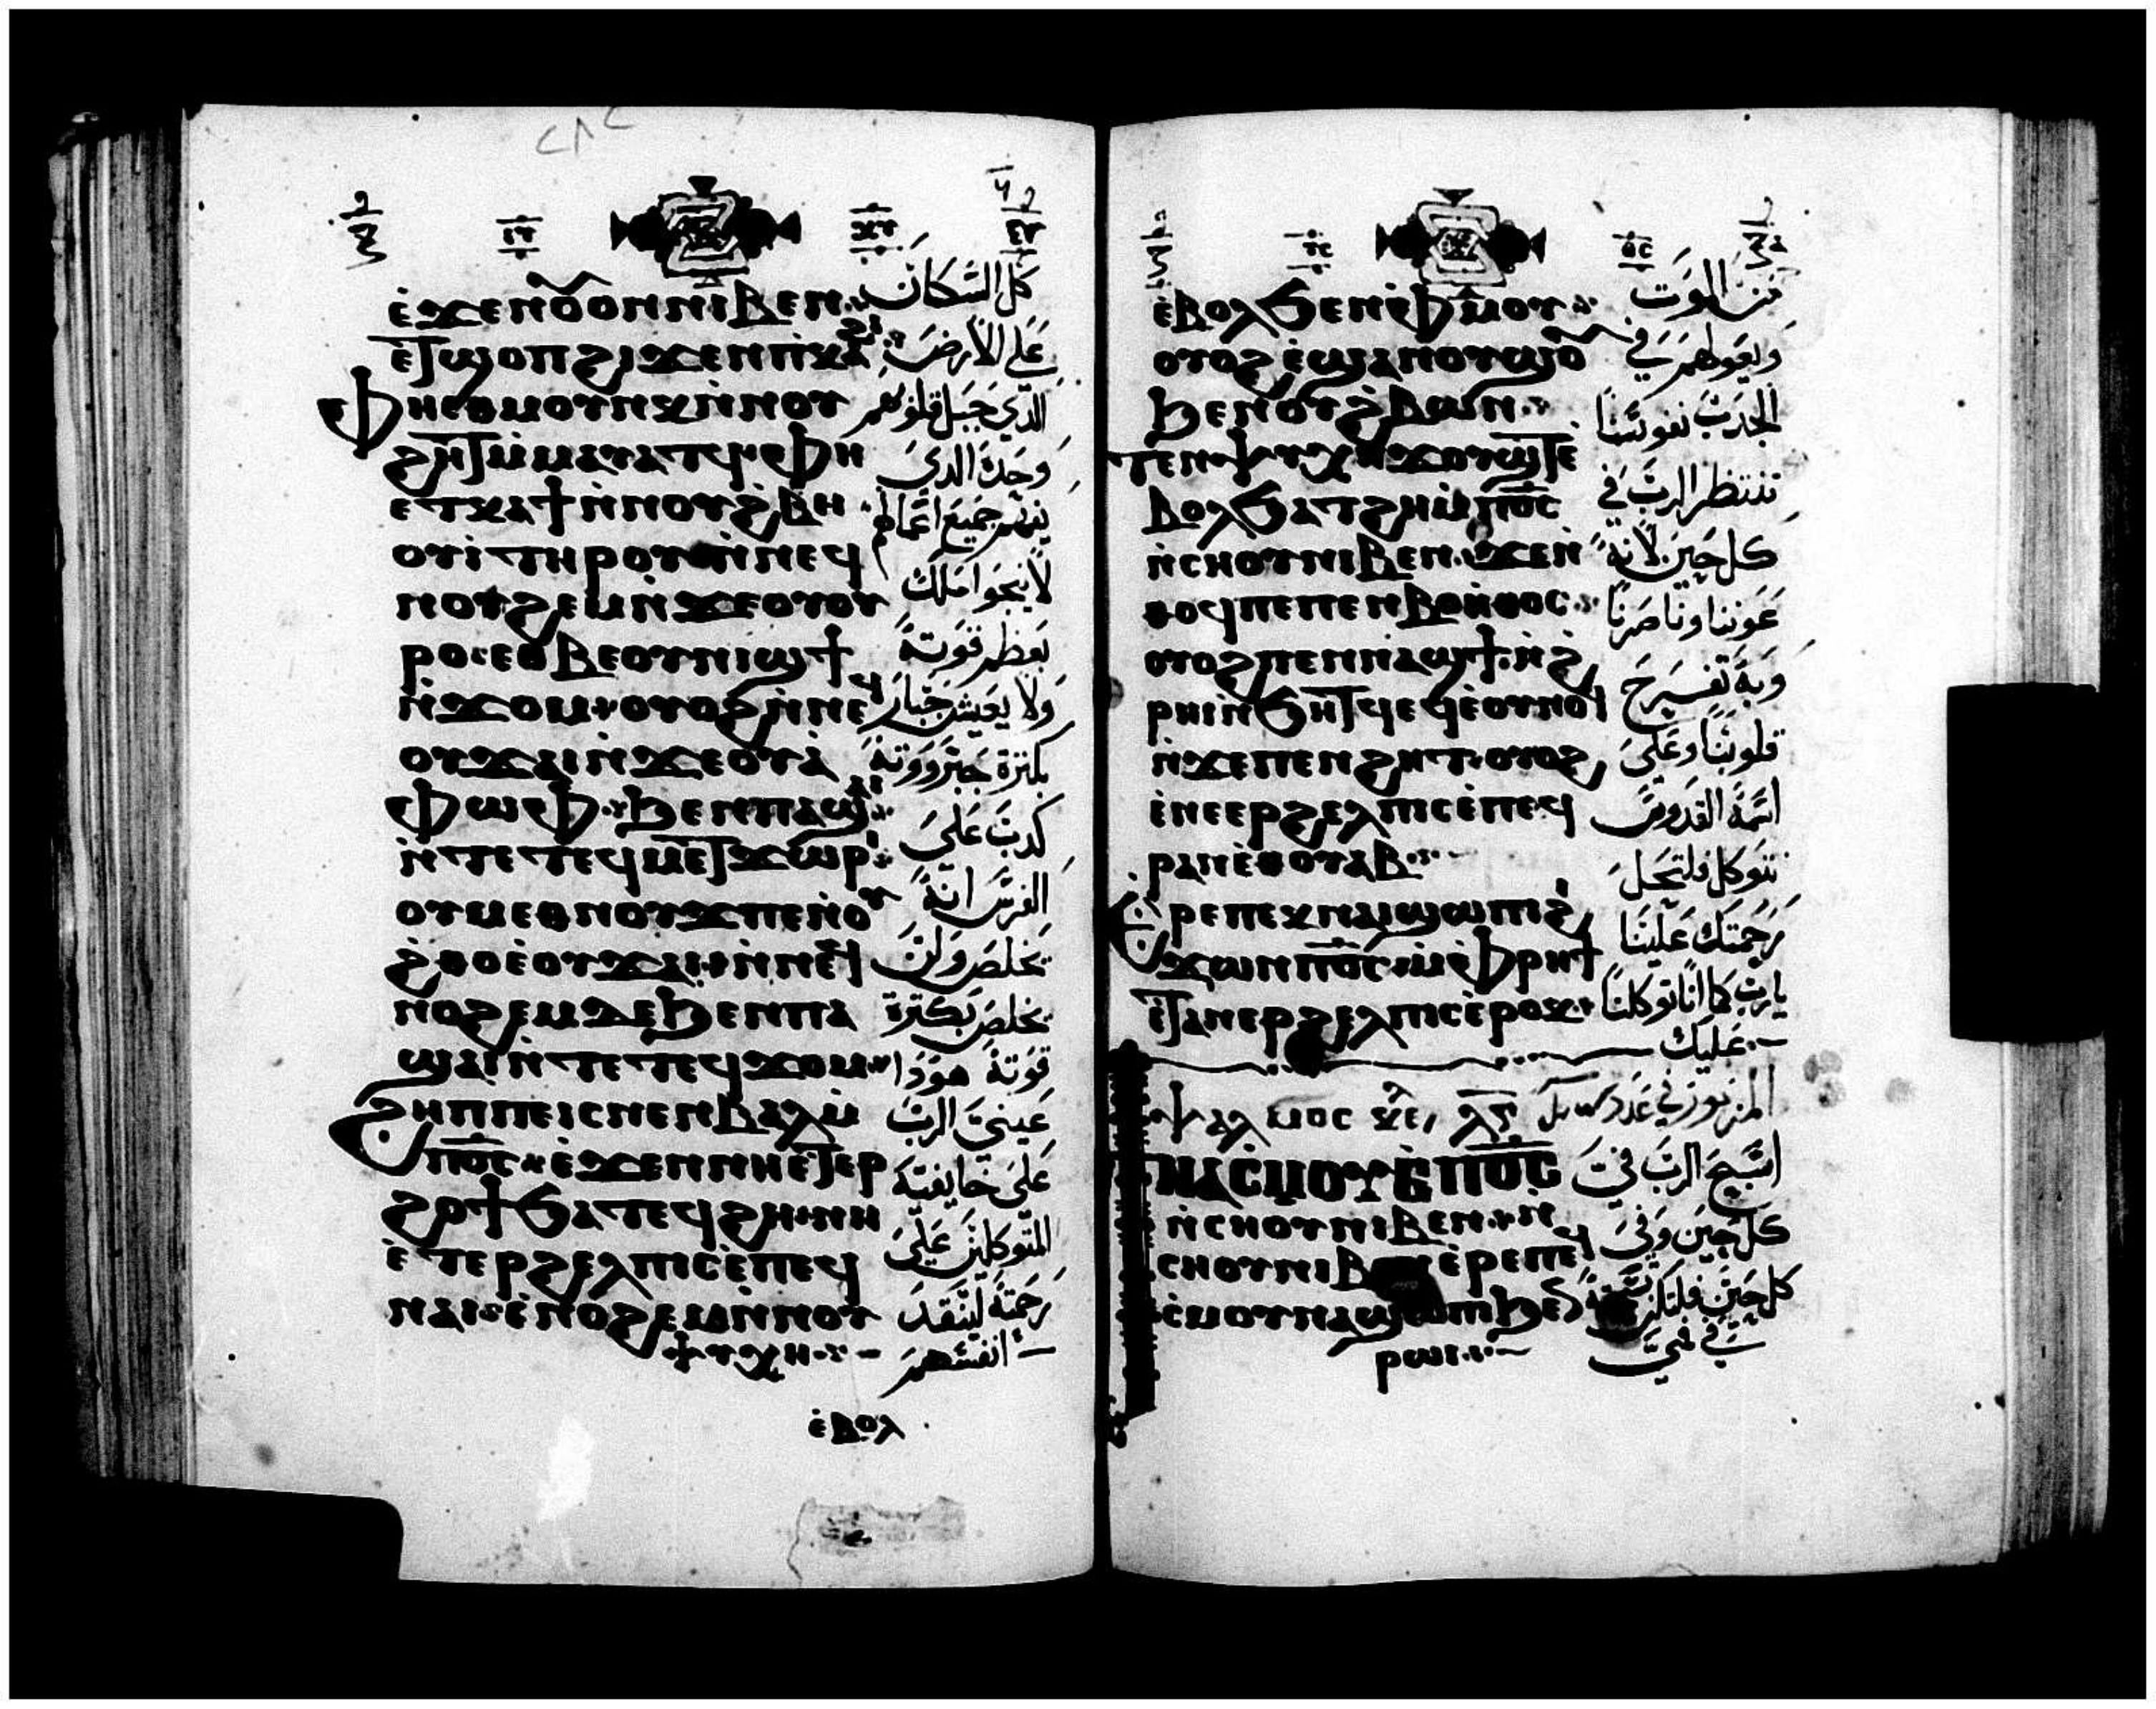 ⲉ̀ϫⲉⲛⲟⲩⲟⲛ ⲛⲓⲃⲉⲛ
ⲉⲧϣⲟⲡ ϩⲓϫⲉⲛ ⲡⲓⲕⲁϩⲓ
ⲫⲏⲉⲑⲙⲟⲩⲛⲕ ⲛ̀ⲛⲟⲩ
ϩⲏⲧ ⲙ̀ⲙⲁⲩⲁⲧϥ ⲫⲏ
ⲉⲧⲕⲁϯ ⲛ̀ⲛⲟⲩϩ̀ⲃⲏ
ⲟⲩⲓ̀ ⲧⲏⲣⲟⲩ ⲛ̀ⲛⲉϥ
ⲛⲟϩⲉⲙ ⲛ̀ϫⲉⲟⲩⲟⲩ
ⲣⲟ ⲉⲑⲃⲉⲟⲩⲛⲓϣϯ
ⲛ̀ϫⲟⲙ ⲟⲩⲟϩ ⲛ̀ⲛⲉϥ
ⲟⲩϫⲁⲓ ⲛ̀ϫⲉⲟⲩⲁ̀
ⲫⲱⲫ ϧⲉⲛⲡⲁϣⲁⲓ
ⲛ̀ⲧⲉⲧⲉϥⲙⲉⲧϫⲱⲣⲓ
ⲟⲩⲙⲉⲑⲛⲟⲩϫ ⲡⲉⲛ̀ⲟⲩ
ϩ̀ⲑⲟ ⲉ̀ⲟⲩϫⲁⲓ ⲛ̀ⲛⲉϥ
ⲛⲟϩⲉⲙ ⲇⲉ ϧⲉⲛⲡⲁ
ϣⲁⲓ ⲛ̀ⲧⲉⲧⲉϥϫⲟⲙ
ϩⲏⲡⲡⲉⲓⲥ ⲛⲉⲛⲃⲁⲗ ⲙ̀
ⲡ̅ⲟ̅ⲥ̅ ⲉ̀ϫⲉⲛ ⲛⲏⲉⲧⲉⲣ
ϩⲟϯ ϧⲁⲧⲉϥϩⲏ ⲛⲏ
ⲉⲧⲉⲣϩⲉⲗⲡⲓⲥ ⲉ̀ⲡⲉϥ
ⲛⲁⲓ ⲉ̀ⲛⲟϩⲉⲙ ⲛ̀ⲛⲟⲩ
ⲯⲩⲭⲏ
ⲉ̀ⲃⲟⲗ
كل السكان
على الارض
الذي جبل قلوبهم
وحده الذي
يفهم جميع اعمالهم
لا ينجوا ملك
بعظم قوته
ولا يعيش جبار
بكثرة جبرووته
كدب على
الفرس انه
يخلص ولن
يخلص بكثرة
قوته هوذا
عيني الرب
على خايفيه
المتوكلين على
رحمته لينقد
انفسهم
ⲉ̀ⲃⲟⲗ ϧⲉⲛⲫ̀ⲙⲟⲩ
ⲟⲩⲟϩ ⲉ̀ϣⲁⲛⲟⲩϣⲟⲩ
ϧⲉⲛⲟⲩϩ̀ⲃⲱⲛ
ⲧⲉⲛⲯⲩⲭⲏ ϫⲟⲩϣⲧ ⲉ̀
ⲃⲟⲗ ϧⲁⲧϩⲏ ⲙ̀ⲡ̅ⲟ̅ⲥ̅
ⲛ̀ⲥⲏⲟⲩ ⲛⲓⲃⲉⲛ ϫⲉⲛ̀
ⲑⲟϥ ⲡⲉ ⲡⲉⲛⲃⲟⲏⲑⲟⲥ
ⲟⲩⲟϩ ⲡⲉⲛⲛⲁϣϯ ⲛ̀ϩ̀
ⲣⲏⲓ ⲛ̀ϧⲏⲧϥ ⲉϥⲉ̀ⲟⲩⲛⲟϥ
ⲛ̀ϫⲉⲡⲉⲛϩⲏⲧ ⲟⲩⲟϩ
ⲉ̀ⲛⲉⲉⲣϩⲉⲗⲡⲓⲥ ⲉ̀ⲡⲉϥ
ⲣⲁⲛ ⲉ̀ⲑⲟⲩⲁⲃ
ⲙⲁⲣⲉⲡⲉⲕⲛⲁⲓ ϣⲱⲡⲓ ϩⲓ
ϫⲱⲛ ⲡ̅ⲟ̅ⲥ̅ ⲙ̀ⲫ̀ⲣⲏϯ
ⲉⲧⲁⲛⲉⲣϩⲉⲗⲡⲓⲥ ⲉ̀ⲣⲟⲕ
ⲯⲁⲗⲙⲟⲥ ⲗ̅ⲅ̅
ϯⲛⲁⲥ̀ⲙⲟⲩ ⲉ̀ⲡ̅ⲟ̅ⲥ̅
ⲛ̀ⲥⲏⲟⲩ ⲛⲓⲃⲉⲛ ⲛ̀
ⲥⲏⲟⲩ ⲛⲓⲃⲉⲛ ⲉ̀ⲣⲉⲡⲉϥ
ⲥ̀ⲙⲟⲩ ⲛⲁϣⲱⲡⲓ ϧⲉⲛ
ⲣⲱⲓ
من الموت
ويعولهم في
الجدب نفوسنا
تنتظر الرب في
كل حين لانه
عوننا وناصرنا
وبه تفرح
قلوبنا وعلى
اسمه القدوس
نتوكل فلتحل
رحمتك علينا
يارب كما انا توكلنا
عليك
المزمور في عدد
اسبح الرب في
كل حين وفي
كل حين فلتكن
في فمي